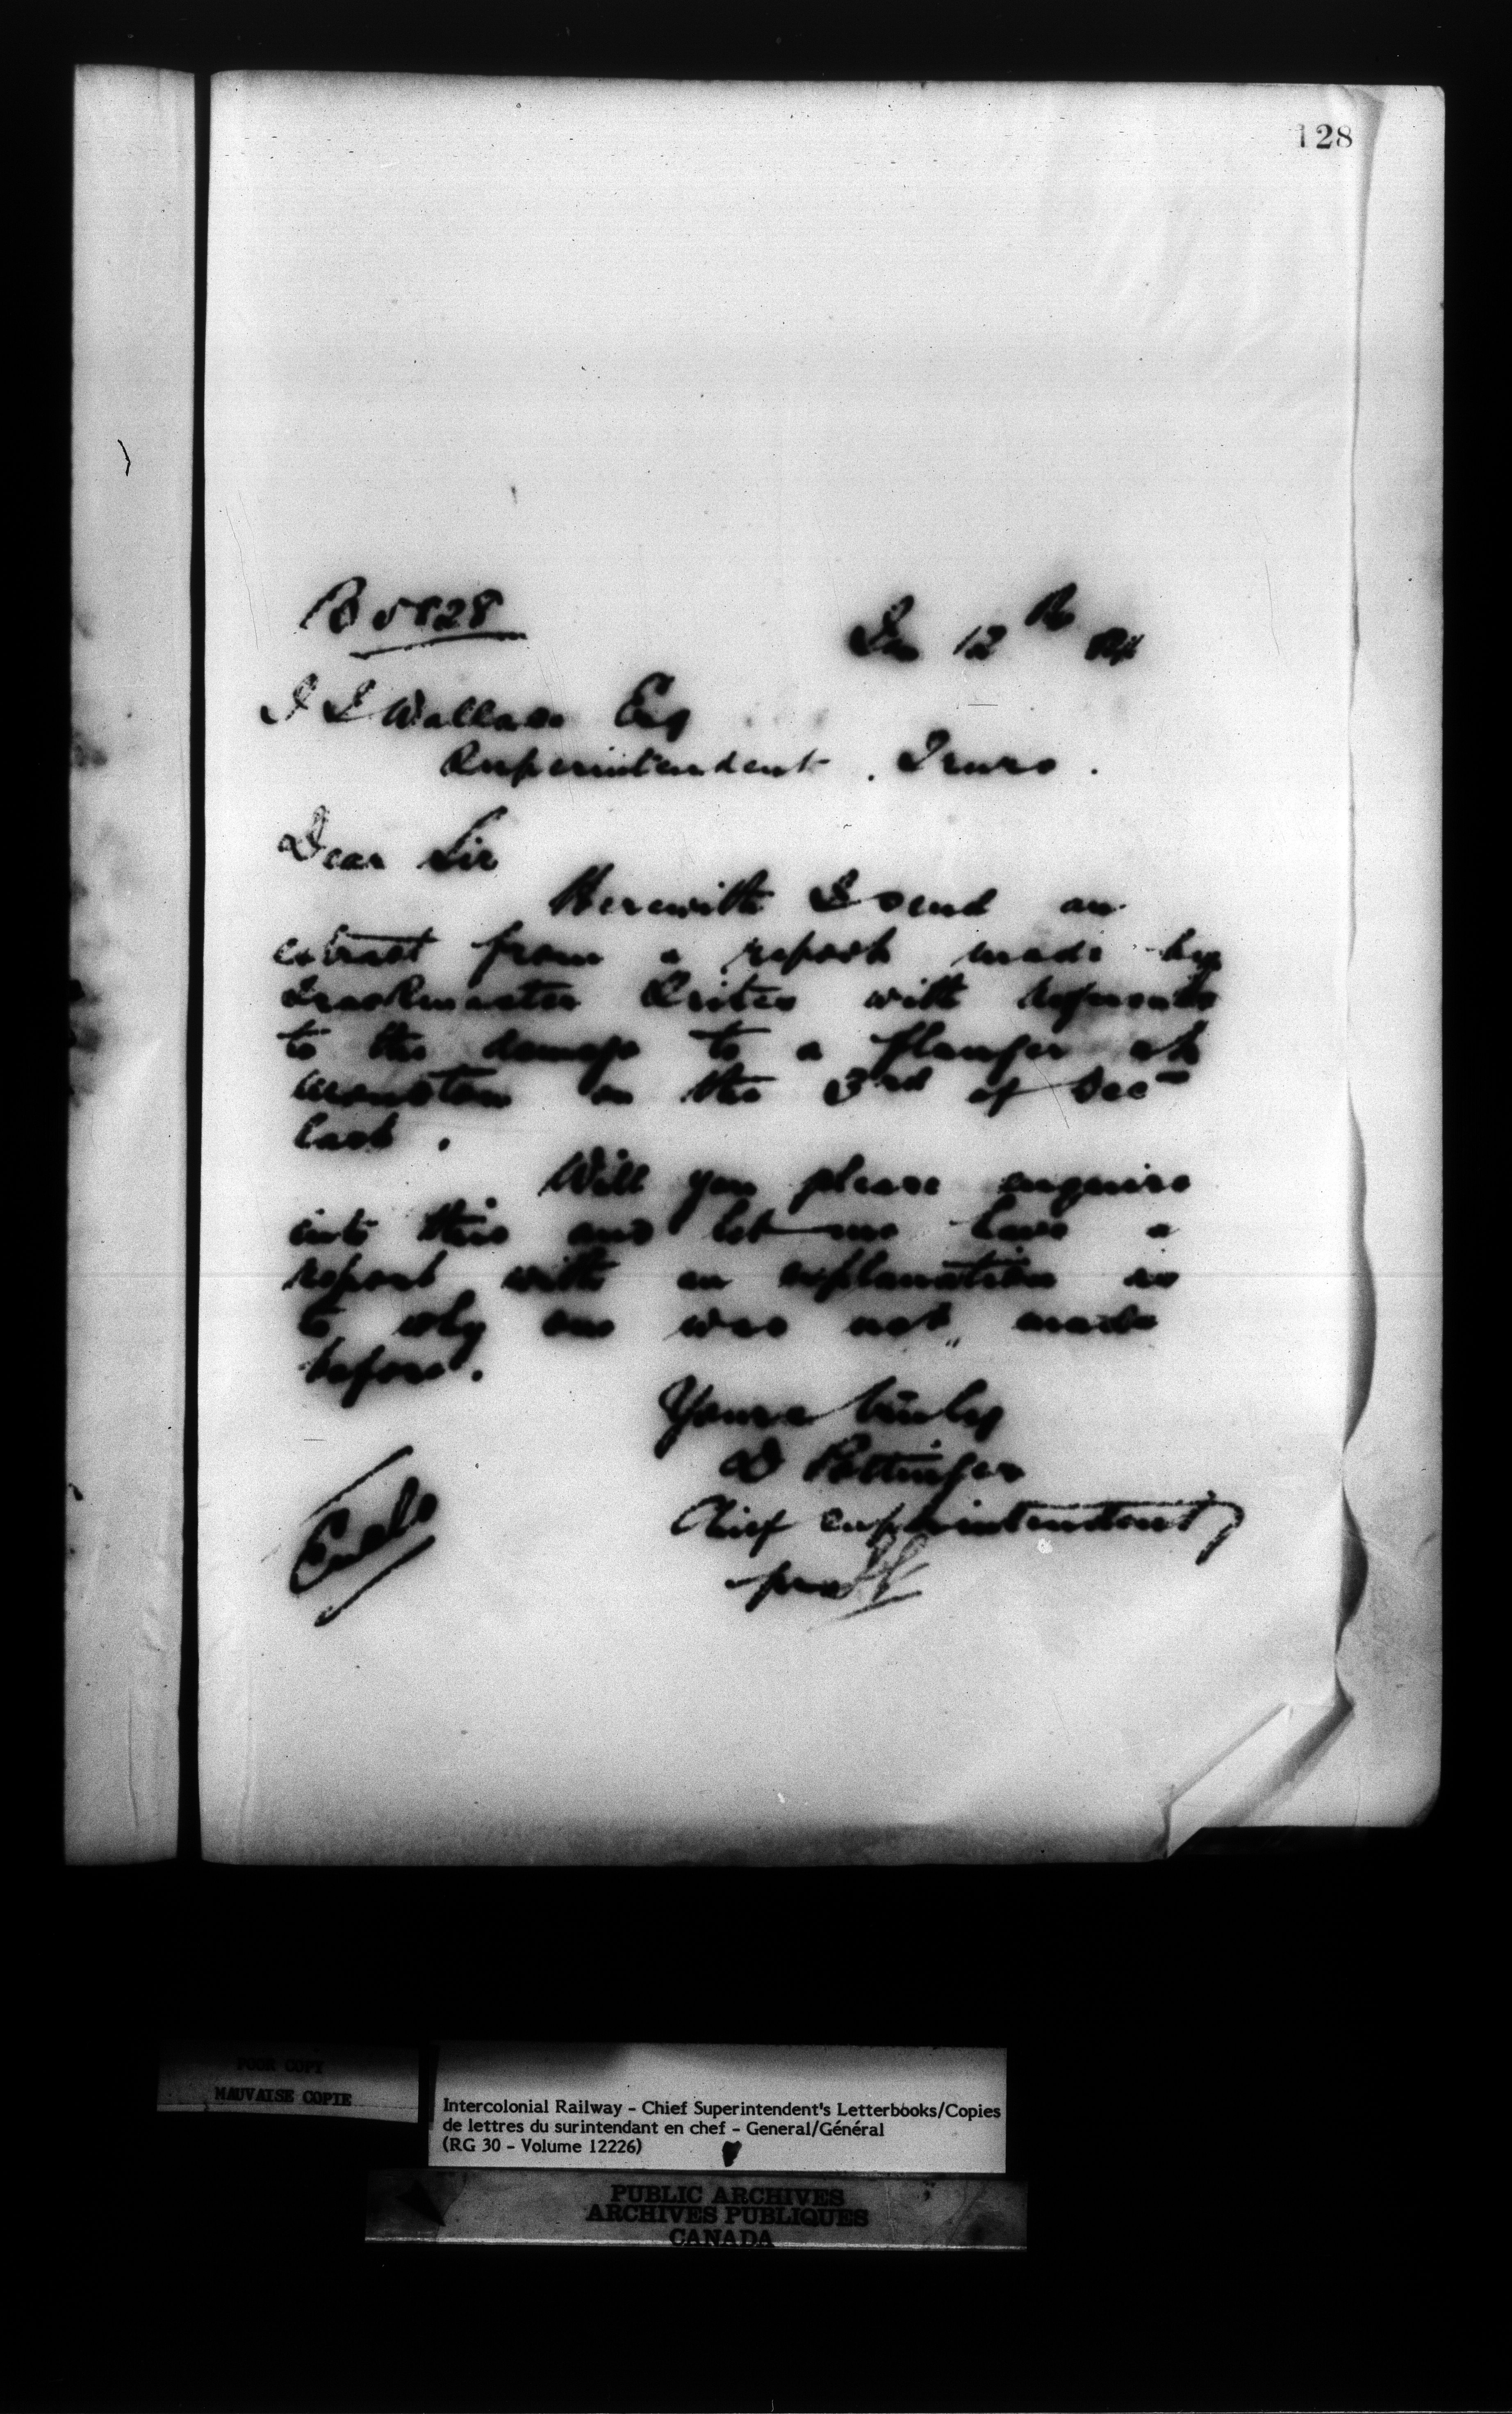 128
B 5828
Jan 12th 84
J J Wallace Esq
Superintendent. Truro.
Dear Sir
Herewith I send an
extract from a report made by
Trackmaster with reference
to the damage to a flanger at
Moncton on the 3rd of Dec
last.
Will you please enquire
into this and let me have a
report with an explanation as
to why one was not made
before.
Yours truly
D Pottinger
Chief Superintendent
pro
Encls
POOR COPY
MAUVAISE COPIE
Intercolonial Railway - Chief Superintendent's Letterbooks/Copies
de lettres du surintendant en chef - General/Général
(RG 30 - Volume 12226)
PUBLIC ARCHIVES
ARCHIVES PUBLIQUES
CANADA